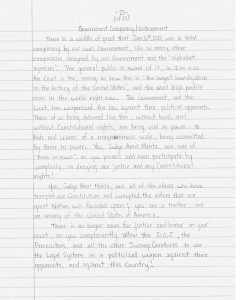 -21-
(1 of 21)
Government Conspiracy / Entrapment
There is a wealth of proof that Jan. 6th 2021 was a total
conspiracy by our own Government, like so many other
conspiracies designed by our Government and the "alphabet
agencies". The general public is aware of it, as I'm sure
the Court is too, seeing as how this is "the largest investigation
in the history of the United States", and the most high profile
cases in the world right now. The Government, and this
Court, has weaponized the law against their political opponents.
Those of us being detained like this, without bond, and
without Constitutional rights, are being used as pawns to
hide real crimes, of a scope, being committed
by those in power. You, Judge Amit Mehta, are one of
"those in power", as you permit and even participate by
complicity, in denying me justice and my Constitutional
rights!
You, Judge Amit Mehta, and all of the others who have
trampled our Constitution and corrupted the values that our
great Nation was founded upon; you are a traitor, and
an enemy of the United States of America.
There is no longer room for "justice and honor" in your
court, as you complacently allow the D.O.J., the
Prosecutors, and all the other Swamp Creatures to use
the Legal System as a politicized weapon against their
opponents, and against this Country!